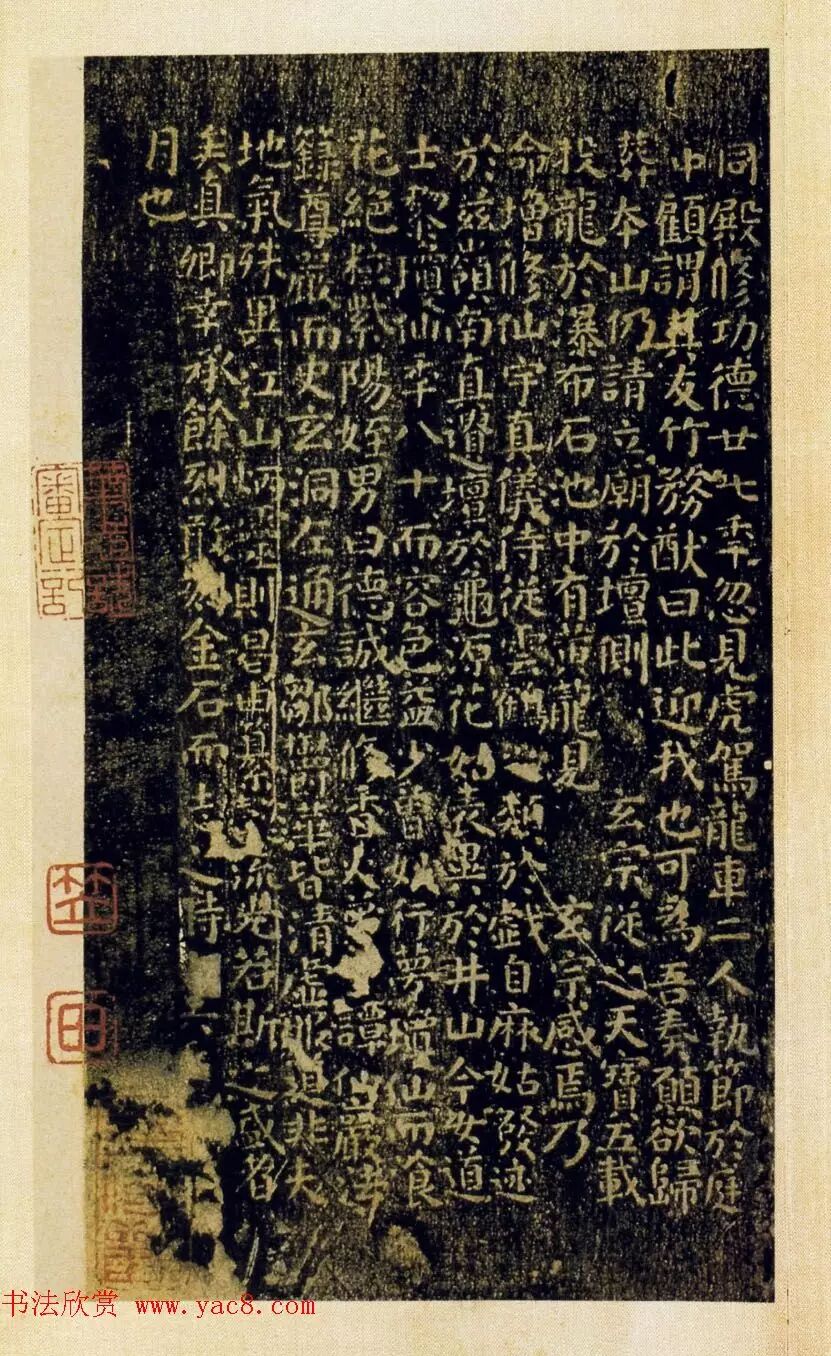 同殿修功德廿七年忽見虎駕龍車二人執節於庭
中顧謂其友竹務猷曰此迎我也可為吾奏願欲歸
葬本山仍請立廟於壇側 玄宗從之天寶五載
投龍於瀑布石池中有黃龍見 玄宗感焉乃
命增修仙宇真儀侍從雲鶴之類於戲自麻姑發迹
於茲嶺南真遺壇於龜源花姑表異於井山今女道
士黎瓊仙年八十而容色益少曾妙行夢瓊仙而食
花絕粒紫陽姪男曰德誠繼修香火 譚仙巖
籙尊嚴而史玄洞左通玄鄒鬱華皆清虛 非夫
地氣殊異江山炳 則曷由纂 流光若斯之盛者
矣真卿幸承餘烈敢 金石而 之時 六
月也
笠
田
书法欣赏 www.yac8.com